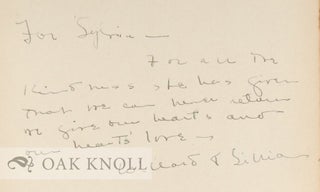 For Sylvia —
For all the
kindness she has given
that we can never return
we give our hearts and
our hearts' love —
Willard & Lillian
OAK KNOLL